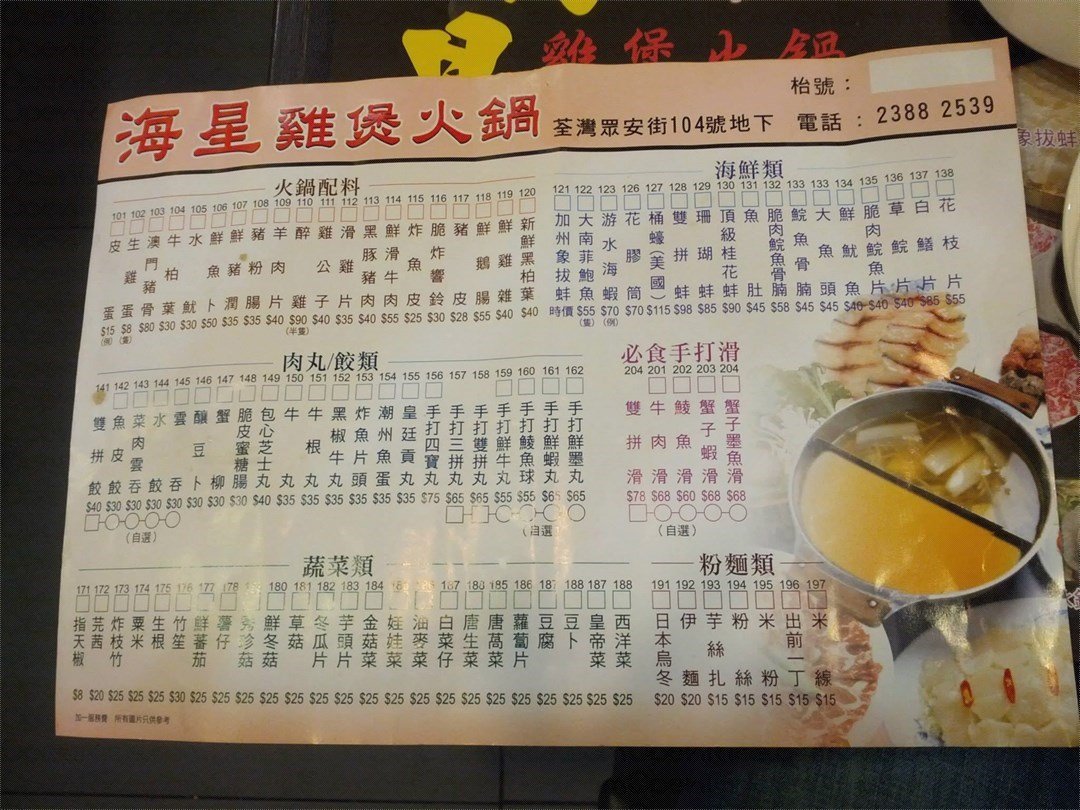 雞煲火鍋
海星雞煲火鍋
荃灣眾安街104號地下
枱號：
電話：2388 2539
象拔蚌
火鍋配料
101 皮蛋 $15 (例)
102 生雞蛋 $8 (隻)
103 澳門豬骨 $80
104 牛柏葉 $30
105 水魷 $30
106 鮮魚卜 $50
107 鮮豬潤 $35
108 豬粉腸 $35
109 羊肉片 $40
110 醉雞 $90 (半隻)
111 雞公子 $40
112 滑雞片 $35
113 黑豚豬肉 $40
114 鮮滑牛肉 $55
115 炸魚皮 $25
116 脆炸響鈴 $30
117 豬皮 $28
118 鮮鵝腸 $55
119 鮮雞雜 $40
120 新鮮黑柏葉 $40
海鮮類
121 加州象拔蚌 時價
122 大南菲鮑魚 $55 (隻)
123 游水海蝦 $70 (例)
126 花膠筒 $70
127 桶蠔(美國) $115
128 雙拼蚌 $98
129 珊瑚蚌 $85
130 頂級桂花蚌 $90
131 魚肚 $45
132 脆肉鯇魚骨腩 $58
133 鯇魚骨腩 $45
133 大魚頭 $45
134 鮮魷魚 $40
135 脆肉鯇魚片 $40
136 草鯇片 $40
137 白鱔片 $85
138 花枝片 $55
肉丸/餃類
141 雙拼餃 $40
142 魚皮餃 $30
143 菜肉雲吞 $30
144 水餃 $30
145 雲吞 $30
(自選)
146 釀豆卜 $30
147 蟹柳 $30
148 脆皮蜜糖腸 $30
149 包心芝士丸 $40
150 牛丸 $35
151 牛根丸 $35
152 黑椒牛丸 $35
153 炸魚片頭 $35
154 潮州魚蛋 $35
155 皇廷貢丸 $35
156 手打四寶 $75
157 手打三拼 $65
157 手打雙拼 $65
159 手打鮮牛丸 $55
160 手打鯪魚球 $55
161 手打鮮蝦丸 $65
162 手打鮮墨丸 $65
(自選)
必食手打滑
204 雙拼滑 $78
201 牛肉滑 $68
202 鯪魚滑 $60
203 蟹子蝦滑 $68
204 蟹子墨魚滑 $68
(自選)
蔬菜類
171 指天椒 $8
172 芫茜 $20
173 炸枝竹 $25
174 粟米 $25
175 生根 $25
176 竹笙 $30
177 鮮蕃茄 $25
178 薯仔 $25
秀珍菇 $25
180 鮮冬菇 $25
181 草菇 $25
182 冬瓜片 $25
183 芋頭片 $25
184 金菇菜 $25
185 娃娃菜 $25
186 油麥菜 $25
187 白菜仔 $25
188 唐生菜 $25
185 唐萵菜 $25
186 蘿蔔片 $25
187 豆腐 $25
188 豆卜 $25
187 皇帝菜 $25
188 西洋菜 $25
粉麵類
191 日本烏冬 $20
192 伊麵 $20
193 芋絲扎 $15
194 粉絲 $15
195 米粉 $15
196 出前一丁 $15
197 米線 $15
加一服務費 所有圖片只供參考